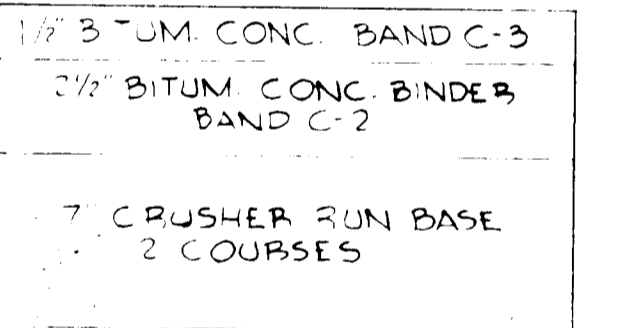 1½" BITUM. CONC. BAND C-3
2½" BITUM. CONC. BINDER
BAND C-2
7" CRUSHER RUN BASE
2 COURSES